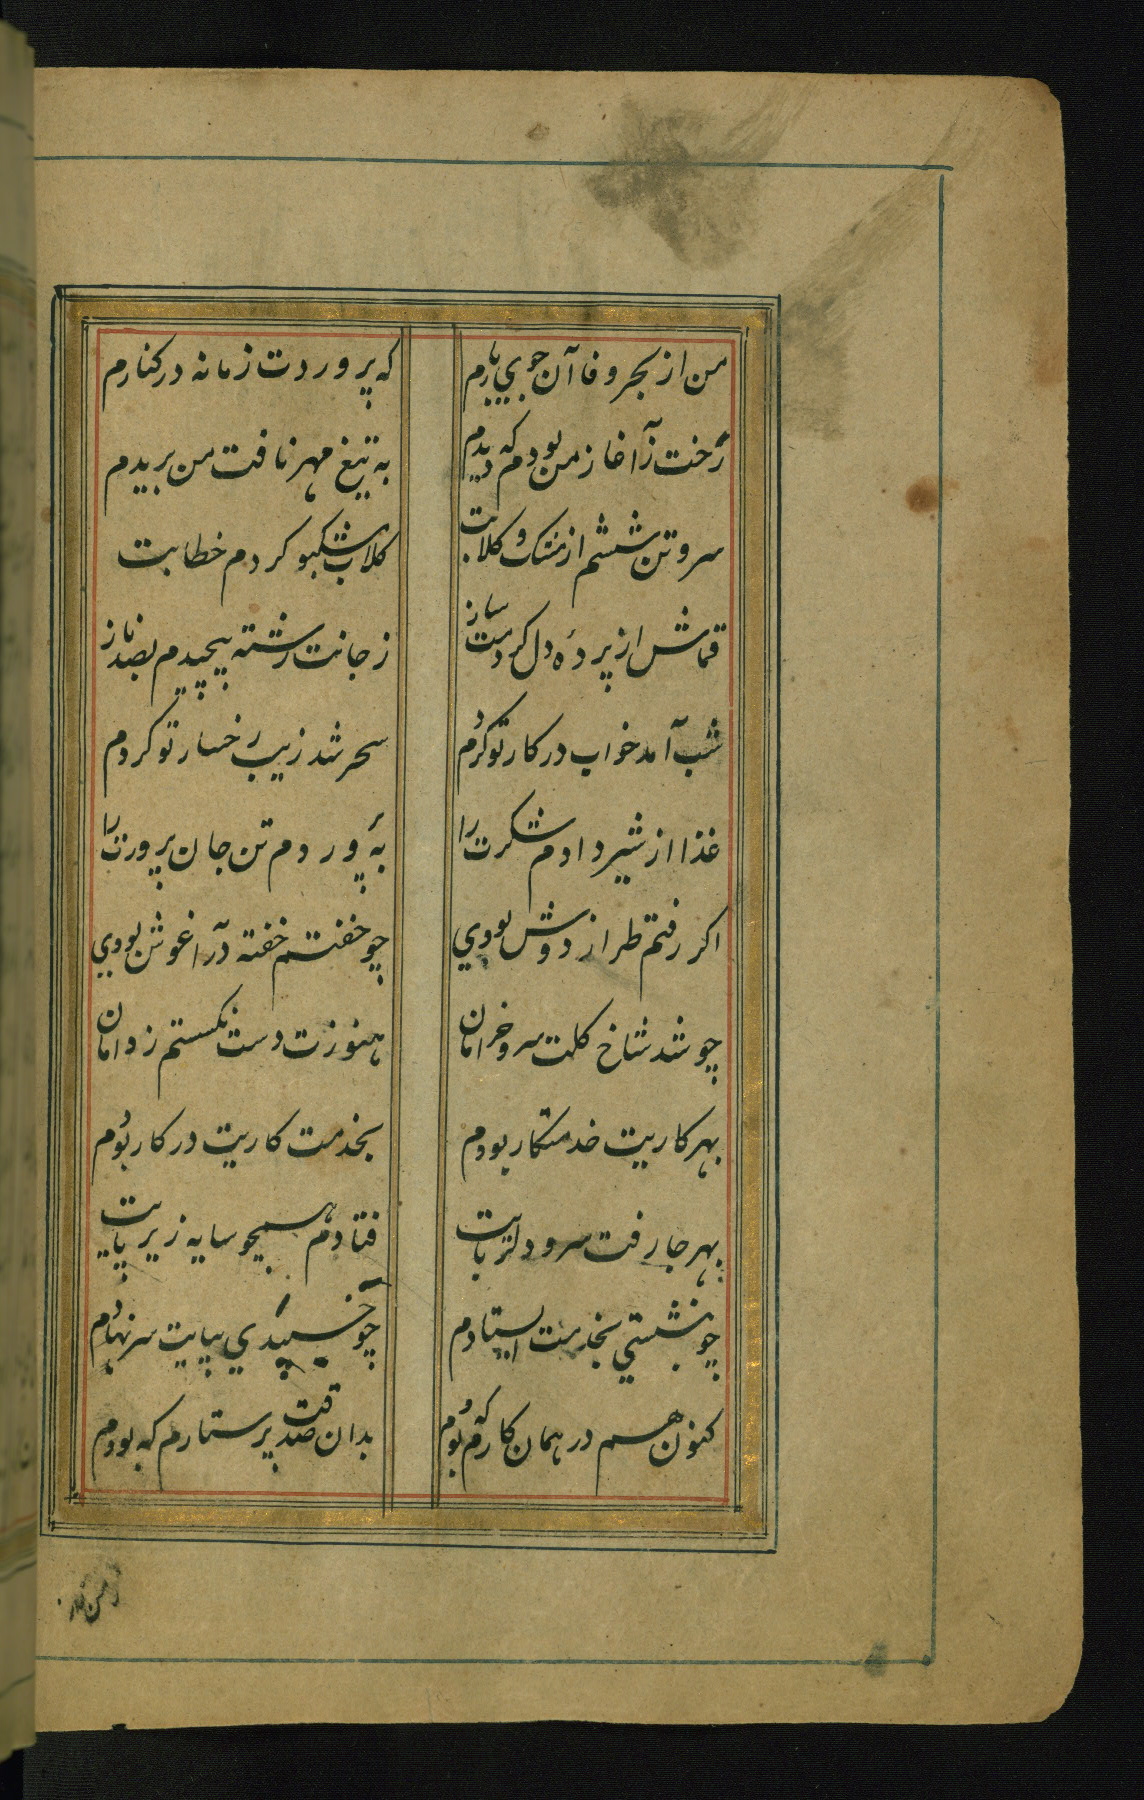 من از بحر وفا آن جوي بارم که پروردت زمانه در کنارم
رخت ز آغاز من بودم که ديدم به تيغ مهر نافت من بريدم
سر و تن شستم از مشک و کلابت کلاب مشکبو کردم خطابت
قماش از پردهٔ دل کردمت ساز ز جانت رشته پيچيدم بصد ناز
شب آمد خواب در کار تو کردم سحر شد زيب رخسار تو کردم
غذا از شير دادم شکرت را بپروردم تن جان پرورت را
اکر رفتم طراز دوش بودي چو خفتم خفته در آغوش بودي
چو شد شاخ کلت سرو خرامان هنوزت دست نکسستم ز دامان
بهر کاريت خدمتکار بودم بخدمت کاريت در کار بودم
بهر جا رفت سرو دلربايت فتادم همچو سايه زير پايت
چو بنشستي بخدمت ايستادم چو خسپيدي بپايت سر نهادم
کنون هم در همان کارم که بودم بدان صدقت پرستارم که بودم
ز من